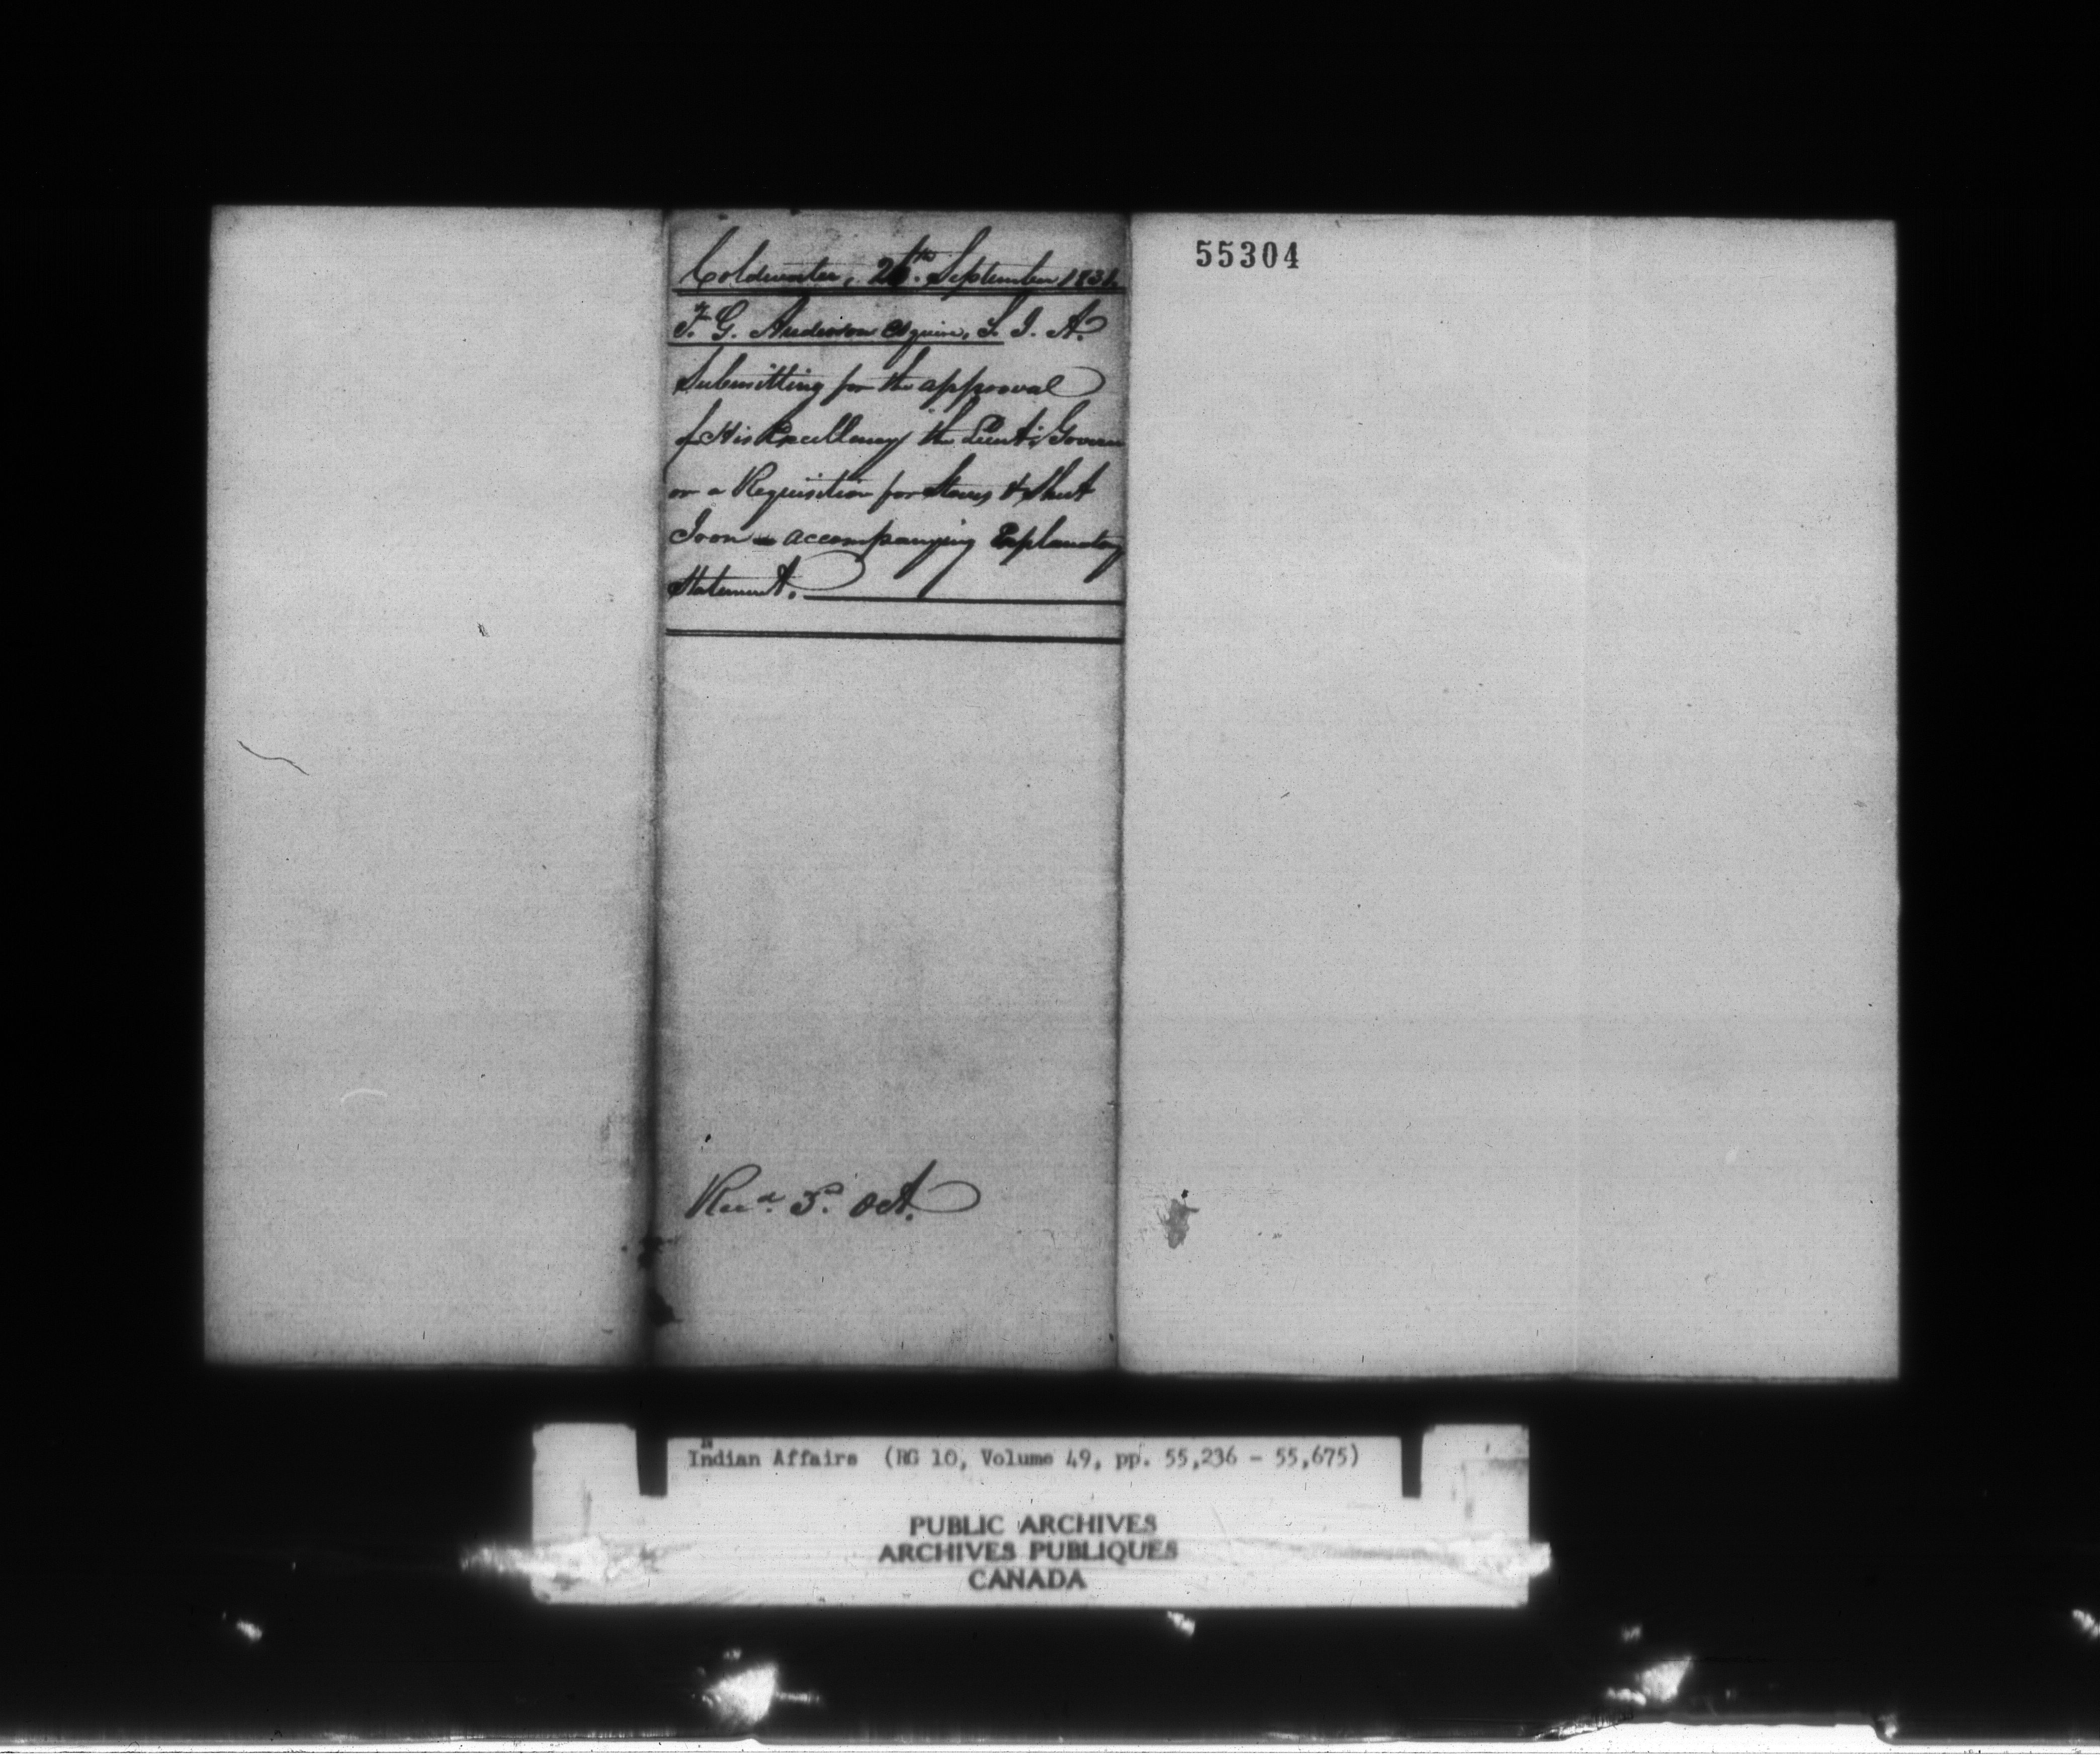 Coldwater, 26th. September 1831.
T. G. Anderson Esquire, S. I. A.
Submitting for the approval
of His Excellency the Lieut: Govern
or a Requisition for Stoves & Sheet
Iron - accompanying Explanatory
Statement.
Recd. 3d. Oct.
55304
Indian Affairs (RG 10, Volume 49, pp. 55,236 - 55,675)
PUBLIC ARCHIVES
ARCHIVES PUBLIQUES
CANADA